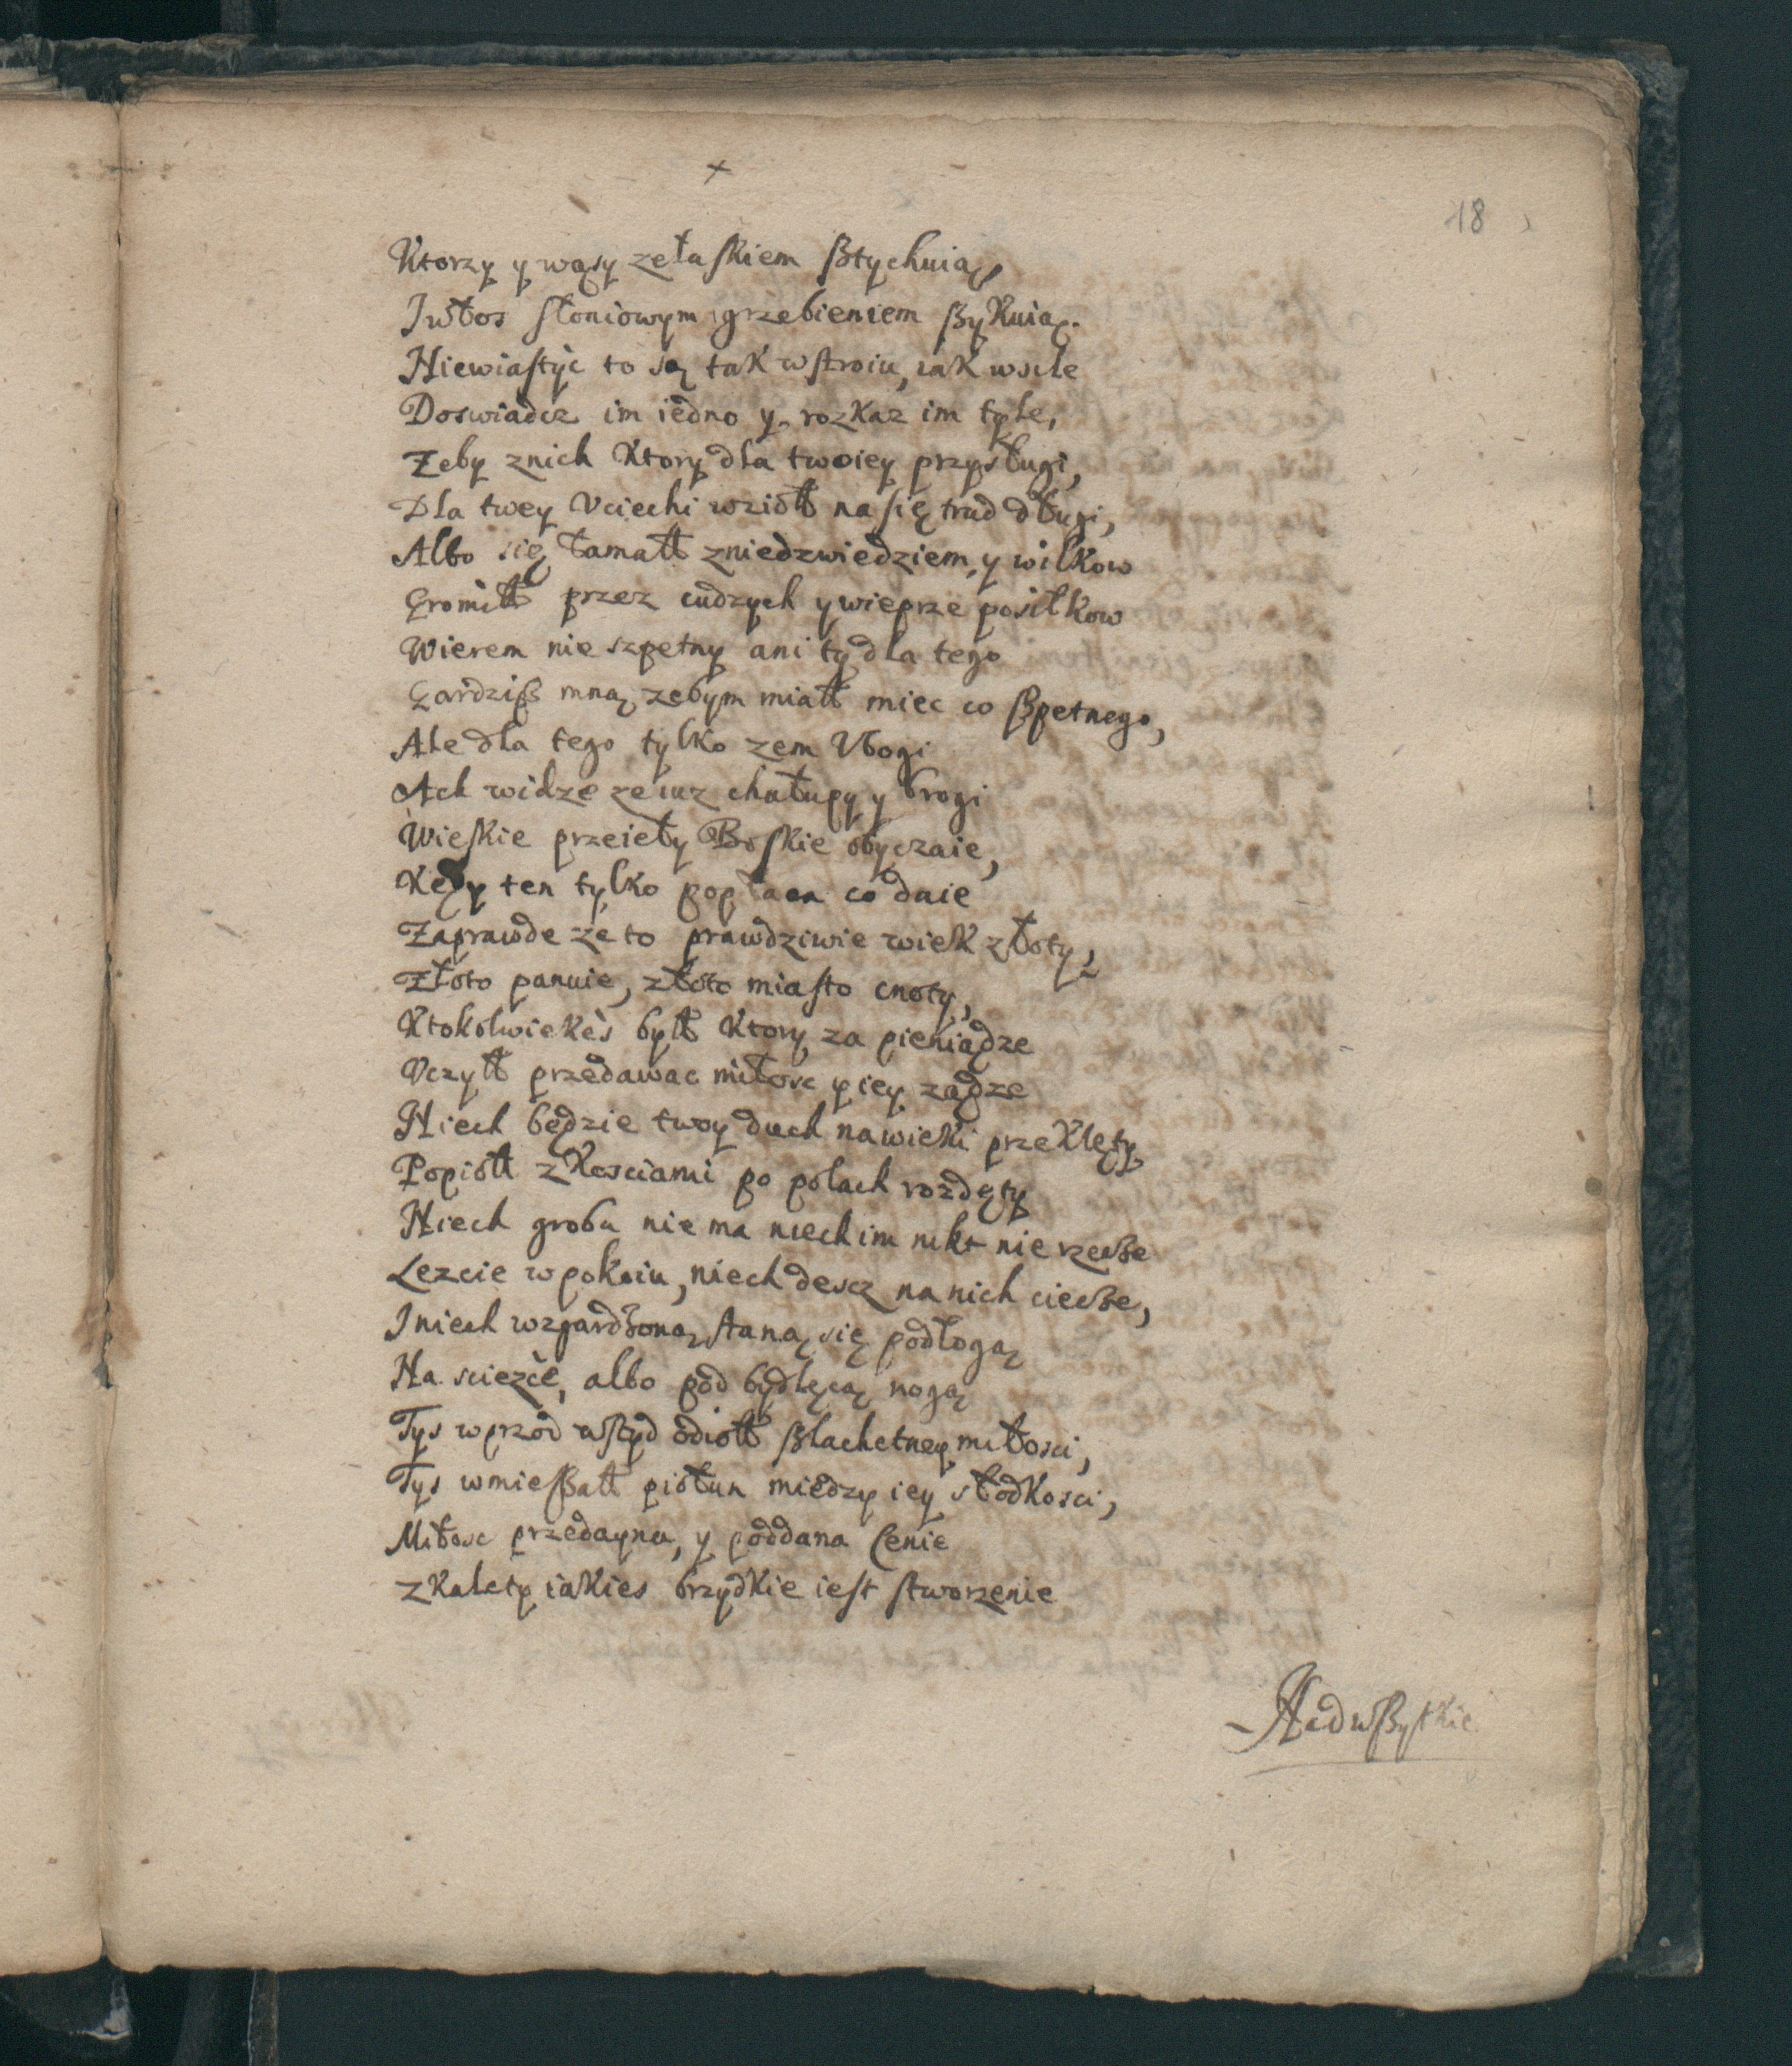 18
Ktorzy y wąsy zelaskiem sztychuią,
I włos słoniowym grzebieniem szykuią.
Niewiastyc to są tak wstroiu, iak wsile
Doswiadcz im iedno y rozkaz im tyle,
Zeby znich ktory dla twoiey przysługi,
Dla twey Vciechi wziółł na się trud długi,
Albo się łamałł zniedzwiedziem, y wilkow
Gromiłł przez cudzych y wieprze posiłkow
Wierem nie szpetny ani ty dla tego
Gardzisz mną zebym miałł miec co szpetnego,
Ale dla tego tylko zem Vbogi
Ach widze ze iuz chałupy y brogi
Wieskie przeieły Boskie obyczaie,
Kędy ten tylko popłaca co daie
Zaprawde ze to prawdziwie wiek złoty,
Złoto panuie, złoto miasto cnoty,
Ktokolwiekes byłł ktory za pieniądze
Vczyłł przedawac miłosc y iey ządze
Niech będzie twoy duch nawieki przeklęty
Popiółł zkosciami po polach rozdęty
Niech grobu nie ma niech im nikt nie rzecze
Lezcie wpokoiu, niech descz na nich ciecze,
I niech wzgardzoną staną się podłogą
Na sciezce, albo pod bydlęcą nogą
Tys wprzod wstyd odiółł szlachetney miłosci,
Tys wmieszałł piołun miedzy iey słodkosci,
Miłosc przedayna, y poddana Cenie
zkalety iakies brzydkie iest stworzenie
Nadwszystkie